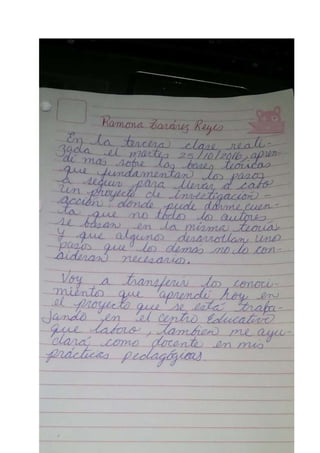 Ramona Tavárez Reyes
En la tercera clase reali-
zada el martes 25/10/2016, apren-
dí mas sobre las bases teóricas
que fundamentan los pasos
a seguir para llevar a cabo
un proyecto de investigación
acción, donde pude darme cuen-
ta que no todos lo autores
se basan en la misma teoría
y que algunos desarrollan uno
pasos que los demas no lo con-
sideran necesarios.
Voy a transferir los conoci-
mientos que aprendí hoy en
el proyecto que se está traba-
jando en el centro Educativo
que laboro, tambien me ayu-
dará como docente en mis
prácticas pedagógicas.